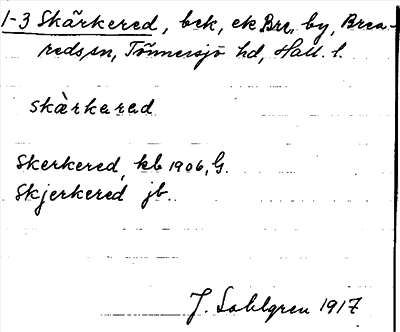 1-3 Skärkered, bck, ek Bre, by, Brea-
reds sn, Tönnersjö hd, Hall. l.
skàrkerad
Skerkered, kb 1906, G.
Skjerkered jb.
J. Sahlgren 1917